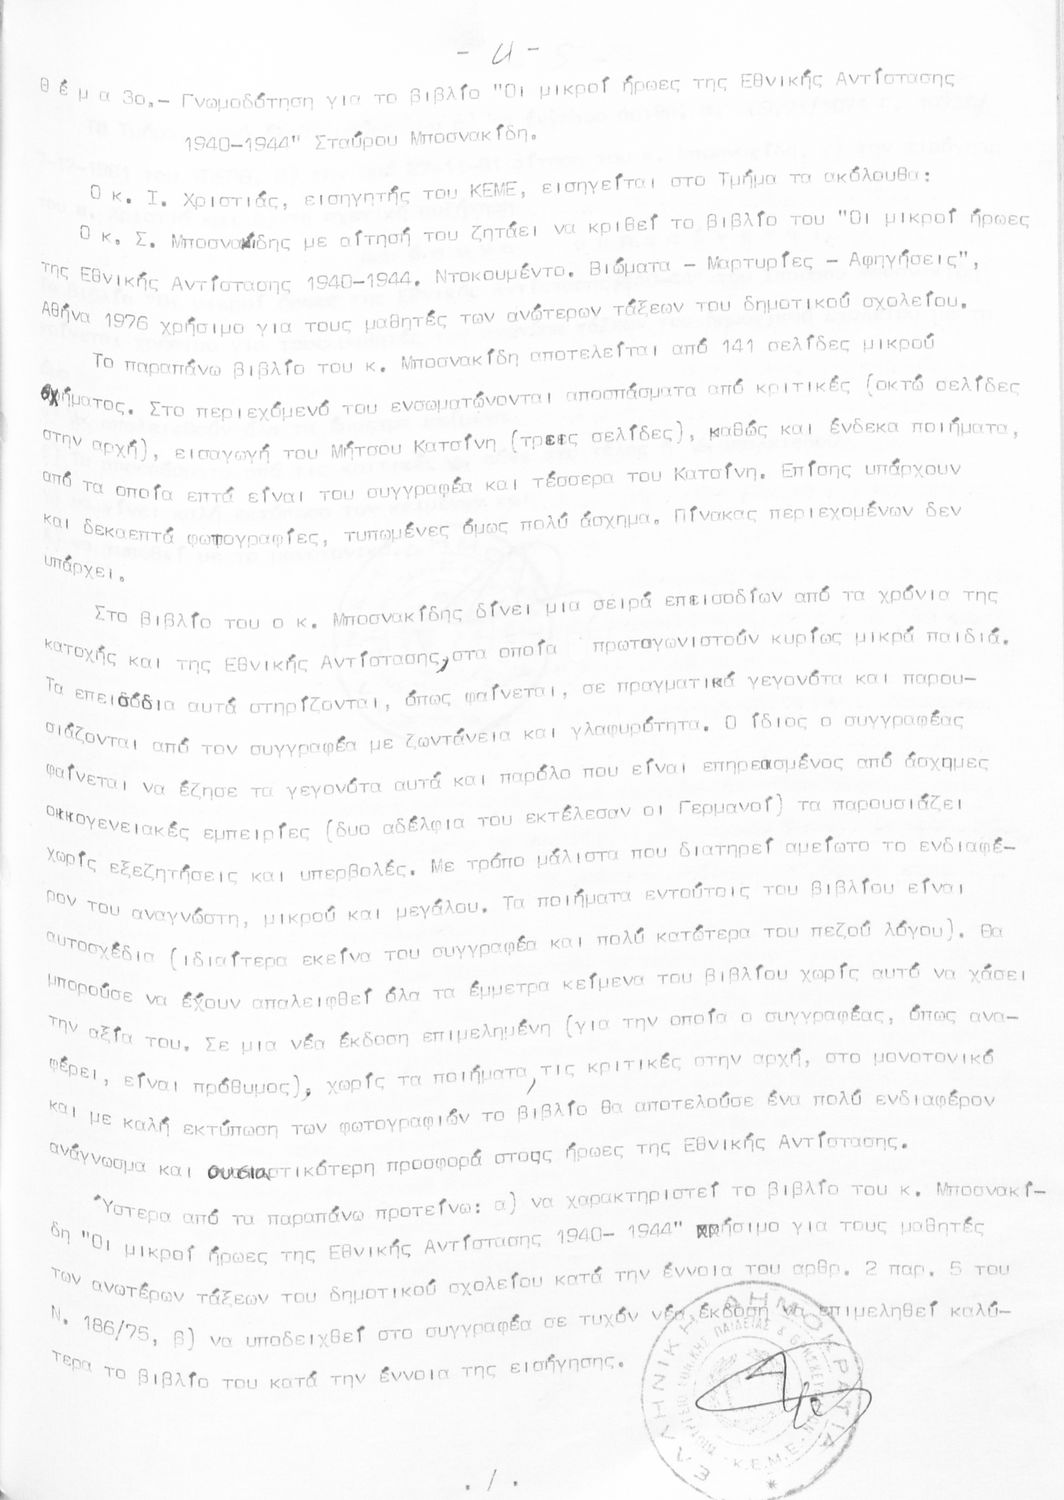 - 4 -
Θ έ μ α 3ο.- Γνωμοδότηση για το βιβλίο "Οι μικροί ήρωες της Εθνικής Αντίστασης
1940-1944" Σταύρου Μποσνακίδη.
Ο κ. Ι. Χριστιάς, εισηγητής του ΚΕΜΕ, εισηγείται στο Τμήμα τα ακόλουθα:
Ο κ. Σ. Μποσνακίδης με αίτησή του ζητάει να κριθεί το βιβλίο του "Οι μικροί ήρωες
της Εθνικής Αντίστασης 1940-1944. Ντοκουμέντο. Βιώματα - Μαρτυρίες - Αφηγήσεις",
Αθήνα 1976 χρήσιμο για τους μαθητές των ανώτερων τάξεων του δημοτικού σχολείου.
Το παραπάνω βιβλίο του κ. Μποσνακίδη αποτελείται από 141 σελίδες μικρού
σχήματος. Στο περιεχόμενό του ενσωματώνονται αποσπάσματα από κριτικές (οκτώ σελίδες
στην αρχή), εισαγωγή του Μήτσου Κατσίνη (τρεις σελίδες), καθώς και ένδεκα ποιήματα,
από τα οποία επτά είναι του συγγραφέα και τέσσερα του Κατσίνη. Επίσης υπάρχουν
και δεκαεπτά φωτογραφίες, τυπωμένες όμως πολύ άσχημα. Πίνακας περιεχομένων δεν
υπάρχει.
Στο βιβλίο του ο κ. Μποσνακίδης δίνει μια σειρά επεισοδίων από τα χρόνια της
κατοχής και της Εθνικής Αντίστασης, στα οποία πρωταγωνιστούν κυρίως μικρά παιδιά.
Τα επεισόδια αυτά στηρίζονται, όπως φαίνεται, σε πραγματικά γεγονότα και παρου-
σιάζονται από τον συγγραφέα με ζωντάνεια και γλαφυρότητα. Ο ίδιος ο συγγραφέας
φαίνεται να έζησε τα γεγονότα αυτά και παρόλο που είναι επηρεασμένος από άσχημες
οικογενειακές εμπειρίες (δυο αδέλφια του εκτέλεσαν οι Γερμανοί) τα παρουσιάζει
χωρίς εξεζητήσεις και υπερβολές. Με τρόπο μάλιστα που διατηρεί αμείωτο το ενδιαφέ-
ρον του αναγνώστη, μικρού και μεγάλου. Τα ποιήματα εντούτοις του βιβλίου είναι
αυτοσχέδια (ιδιαίτερα εκείνα του συγγραφέα και πολύ κατώτερα του πεζού λόγου). Θα
μπορούσε να έχουν απαλειφθεί όλα τα έμμετρα κείμενα του βιβλίου χωρίς αυτό να χάσει
την αξία του. Σε μια νέα έκδοση επιμελημένη (για την οποία ο συγγραφέας, όπως ανα-
φέρει, είναι πρόθυμος), χωρίς τα ποιήματα, τις κριτικές στην αρχή, στο μονοτονικό
και με καλή εκτύπωση των φωτογραφιών το βιβλίο θα αποτελούσε ένα πολύ ενδιαφέρον
ανάγνωσμα και ουσιαστικότερη προσφορά στους ήρωες της Εθνικής Αντίστασης.
Ύστερα από τα παραπάνω προτείνω: α) να χαρακτηριστεί το βιβλίο του κ. Μποσνακί-
δη "Οι μικροί ήρωες της Εθνικής Αντίστασης 1940- 1944" χρήσιμο για τους μαθητές
των ανωτέρων τάξεων του δημοτικού σχολείου κατά την έννοια του αρθρ. 2 παρ. 5 του
Ν. 186/75, β) να υποδειχθεί στο συγγραφέα σε τυχόν νέα έκδοση να επιμεληθεί καλύ-
τερα το βιβλίο του κατά την έννοια της εισήγησης.
ΕΛΛΗΝΙΚΗ ΔΗΜΟΚΡΑΤΙΑ
Κ.Ε.Μ.Ε.
./.